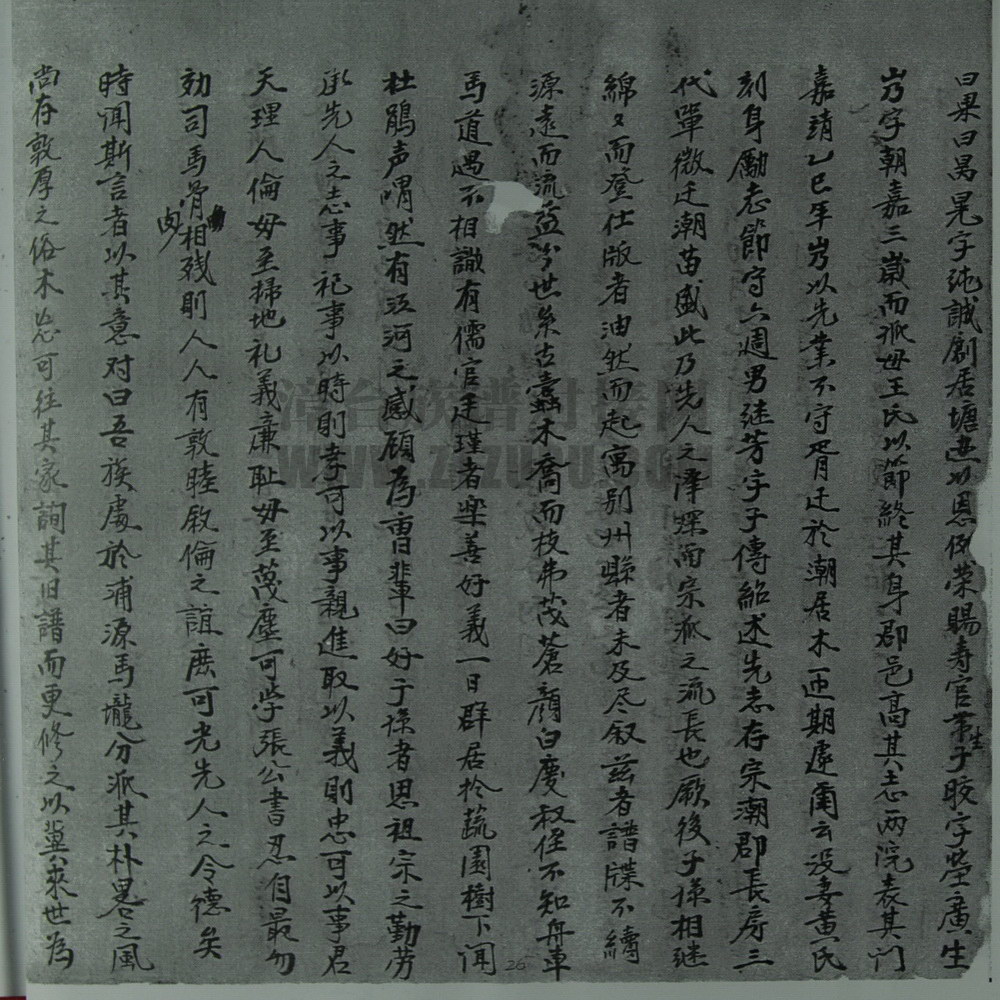 曰果曰昺晃字純誠創居塘邊以恩例荣賜寿官生子晈字瑩廣生
岃字朝嘉三歲而孤母王氏以節終其身郡邑高其志两院表其门
嘉靖乙巳年岃以先業不守胥迁於潮居木匝期遽甯云没妻黄氏
刻身勵志節守六週男継芳字子傳紹述先志存宗潮郡長房三
代單微迁潮苗盛此乃先人之澤深而宗派之流長也厥後子孫相継
綿々而登仕版者油然而起寓别州縣者未及尽叙兹者譜牒不續
源遠而流益分世系古蠹木喬而枝弗茂蒼顔白处叔侄不知舟車
馬道遇不相識有儒官廷瑾者樂善好義一日群居於蔬園樹下闻
杜鵑声喟然有江河之感顧為曹輩曰好子孫者思祖宗之勤劳
承先人之志事祀事以時則孝可以事親進取以義則忠可以事君
天理人倫毋至掃地礼義廉耻毋至蔑塵可学張公書忍自最勿
効司馬骨肉相残則人人有敦睦敘倫之誼庶可光先人之令德矣
時闻斯言者以其意对曰吾族處於浦源馬壠分派其朴畧之風
尚存敦厚之俗未忘可往其家詢其旧譜而更修之以冀来世為
26
漳台族譜对接网
WWW.ZTZUPU.COM